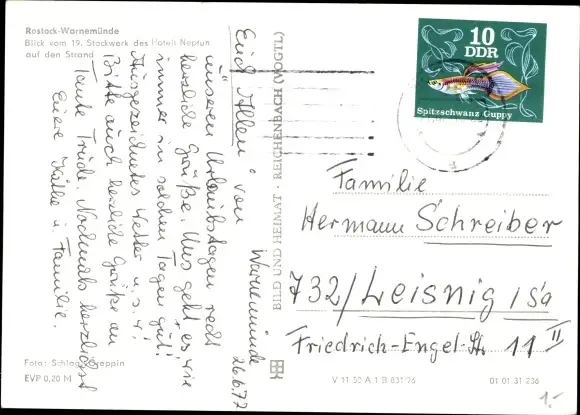 Rostock-Warnemünde
Blick vom 19. Stockwerk des Hotels Neptun
auf den Strand
Warnemünde
26.6.77
Euch Allen von
unseren Urlaubstagen recht
herzliche Grüße. Uns geht es wie
immer in solchen Tagen gut!
Ausgezeichnetes Wetter u.s.w.
Bitte auch herzliche Grüße an
Tante Trude. Nochmals herzlichst
Eure Käthe u. Familie.
Foto: Schlag, Greppin
EVP 0,20 M
BILD UND HEIMAT · REICHENBACH (VOGTL)
10
DDR
Spitzschwanz Guppy
Familie
Hermann Schreiber
732/Leisnig / Sa
Friedrich-Engel-Str. 11 II
V 11 50 A 1 B 831/76
01 01 31 236
1.-